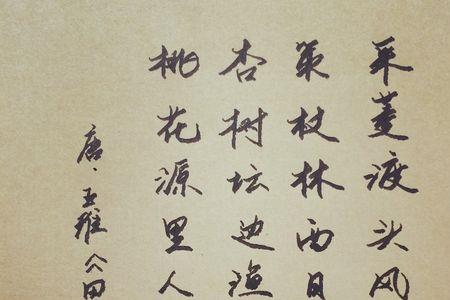 采菱渡头风
策杖林西日
杏树坛边渔
桃花源里人
唐·王维《田